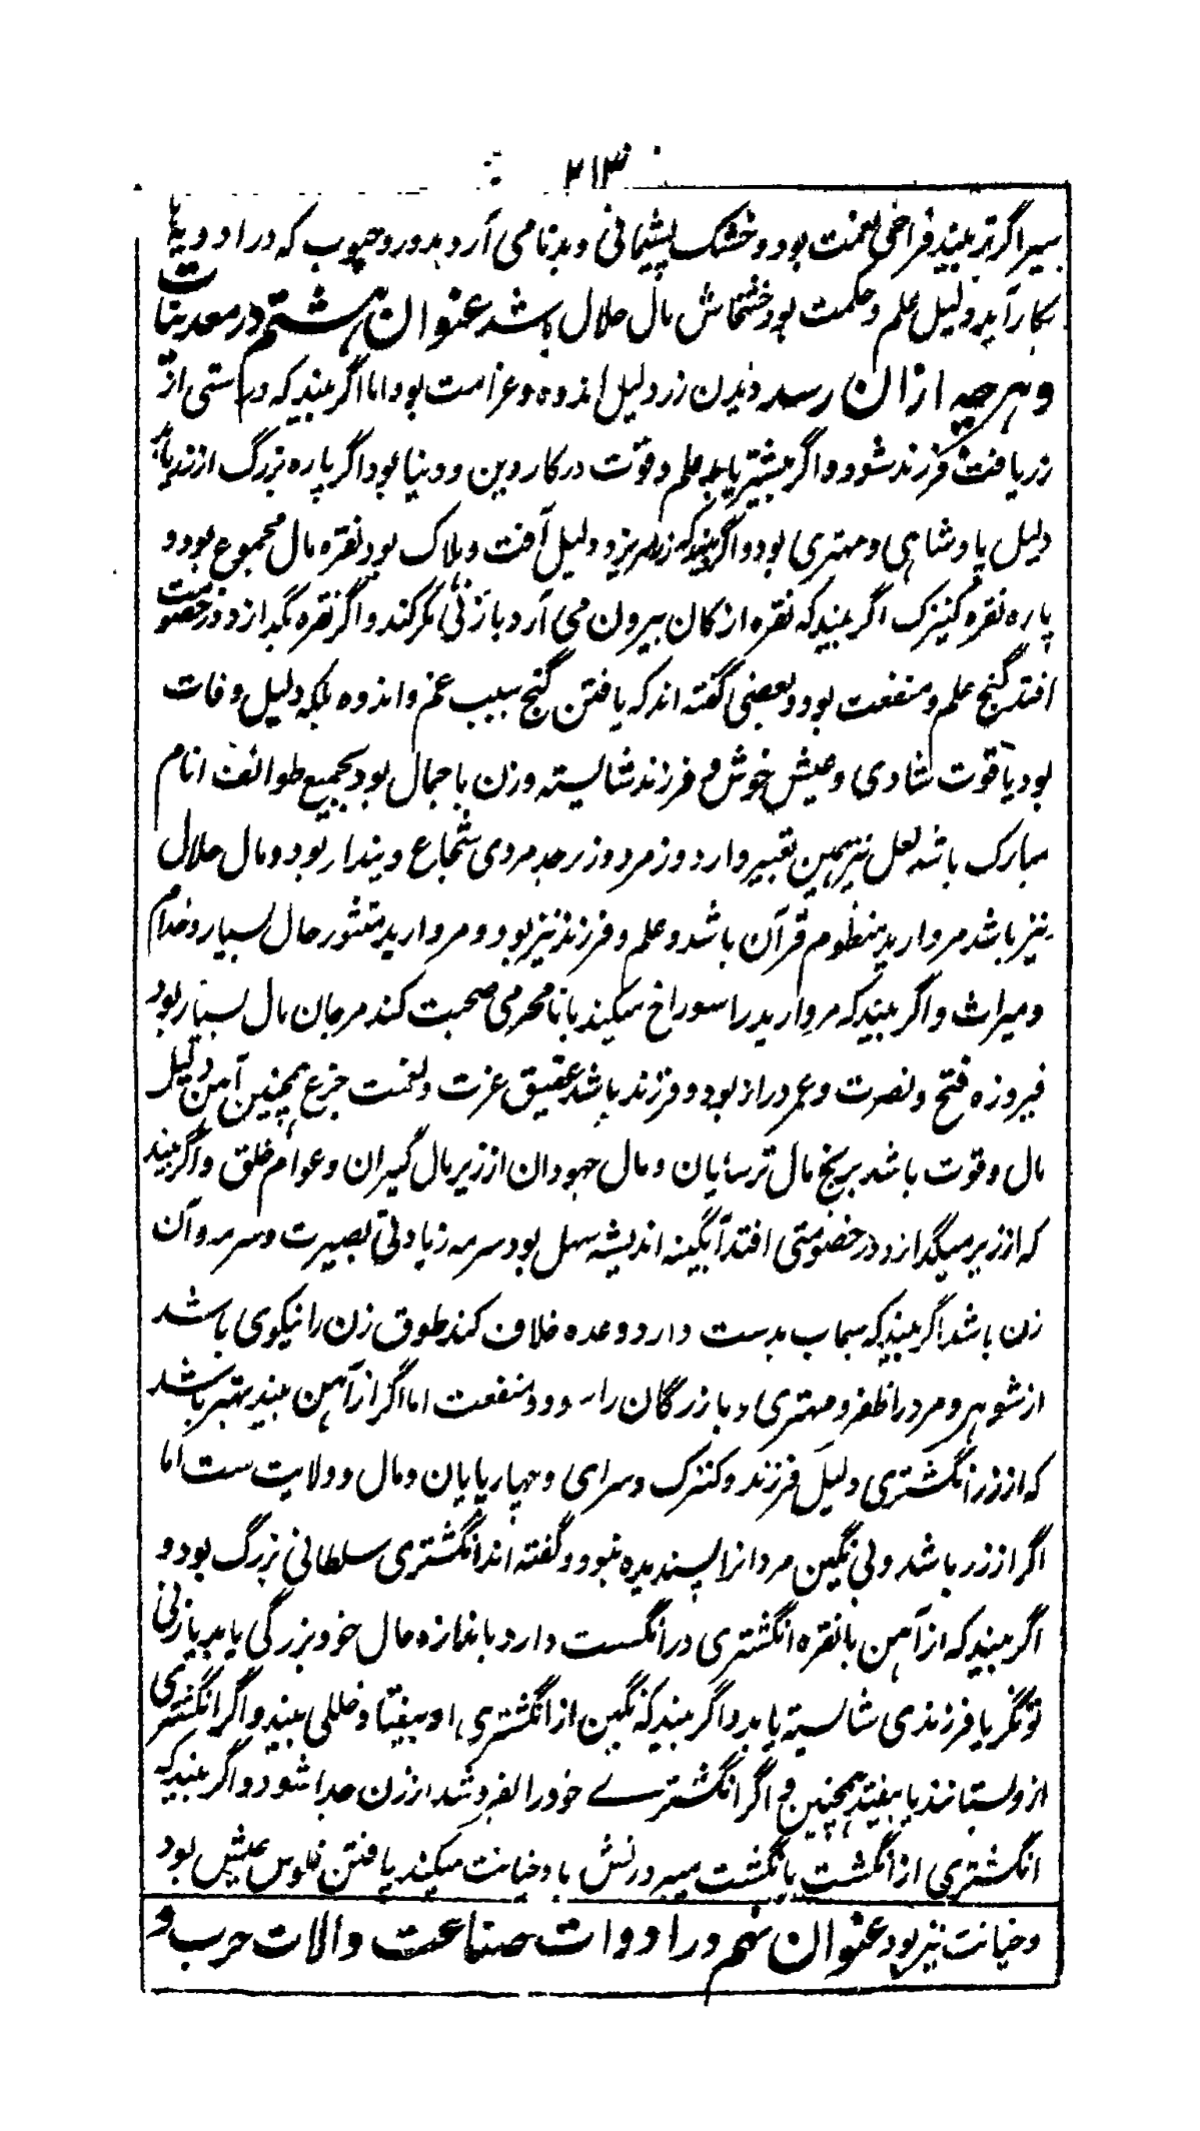 ۲۱۳
سیر اگر تر بیند فراخی نعمت بود و خشک پشیمانی و بدنامی آرد بذور و حبوب که در ادویها
بکار آید دلیل علم و حکمت بود خشخاش مال حلال باشد عنوان هشتم در معدنیات
و هرچه ازان رسد دیدن زر دلیل اندوه و غرامت بود اما اگر بیند که درستی از
زر یافت فرزند شود و اگر بیشتر یابد علم و قوت در کار دین و دنیا بود اگر پاره بزرگ از زر یابد
دلیل پادشاهی و مهتری بود و اگر بیند که زر میریزد دلیل آفت و هلاک بود نقره مال مجموع بود و
پاره نقره کنیزک اگر بیند که نقره از کان بیرون می آرد با زنی مکر کند و اگر نقره بگدازد در خصومت
افتد گنج علم و منفعت بود و بعضی گفته اند که یافتن گنج سبب غم و اندوه بلکه دلیل وفات
بود یاقوت شادی و عیش خوش و فرزند شایسته و زن باجمال بود بجمیع طوائف انام
مبارک باشد لعل نیز همین تعبیر دارد و زمرد و زبرجد مردی شجاع دیندار بود و مال حلال
نیز باشد مروارید منظوم قرآن باشد و علم و فرزند نیز بود و مروارید منثور مال بسیار و خدام
و میراث و اگر بیند که مروارید را سوراخ میکند با نامحرمی صحبت کند مرجان مال بسیار بود
فیروزه فتح و نصرت و عمر دراز بود و فرزند باشد عقیق عزت و نعمت جزع همچنین آهن دلیل
مال و قوت باشد برنج مال ترسایان و مال جهودان ارزیر مال گبران و عوام خلق و اگر بیند
که ارزیر میگدازد در خصومتی افتد آبگینه اندیشه سهل بود سرمه زیادتی بصیرت و سرمه دان
زن باشد اگر بیند که سیماب بدست دارد وعده خلاف کند طوق زن را نیکوی باشد
از شوهر و مرد را ظفر و مهتری و بازرگان را سود و منفعت اما اگر از آهن بیند بهتر باشد
که از زر انگشتری دلیل فرزند و کنیزک و سرای و چهارپایان و مال و ولایت ست اما
اگر از زر باشد و بی نگین مردانرا پسندیده نبود و گفته اند انگشتری سلطانی بزرگ بود و
اگر بیند که از آهن با نقره انگشتری در انگست دارد باندازه حال خود بزرگی یابد یا زنی
تونگر یا فرزندی شایسته یابد و اگر بیند که نگین از انگشتری او بیفتاد خللی بیند و اگر انگشتری
ازو بستانند یا بیفتد همچنین و اگر انگشترے خود را بفروشد از زن جدا شود و اگر بیند که
انگشتری از انگشت بانگشت میبرد زنش با و خیانت میکند یافتن فلوس عیش بود
و خیانت نیز بود عنوان نهم در ادوات صناعت والات حرب و